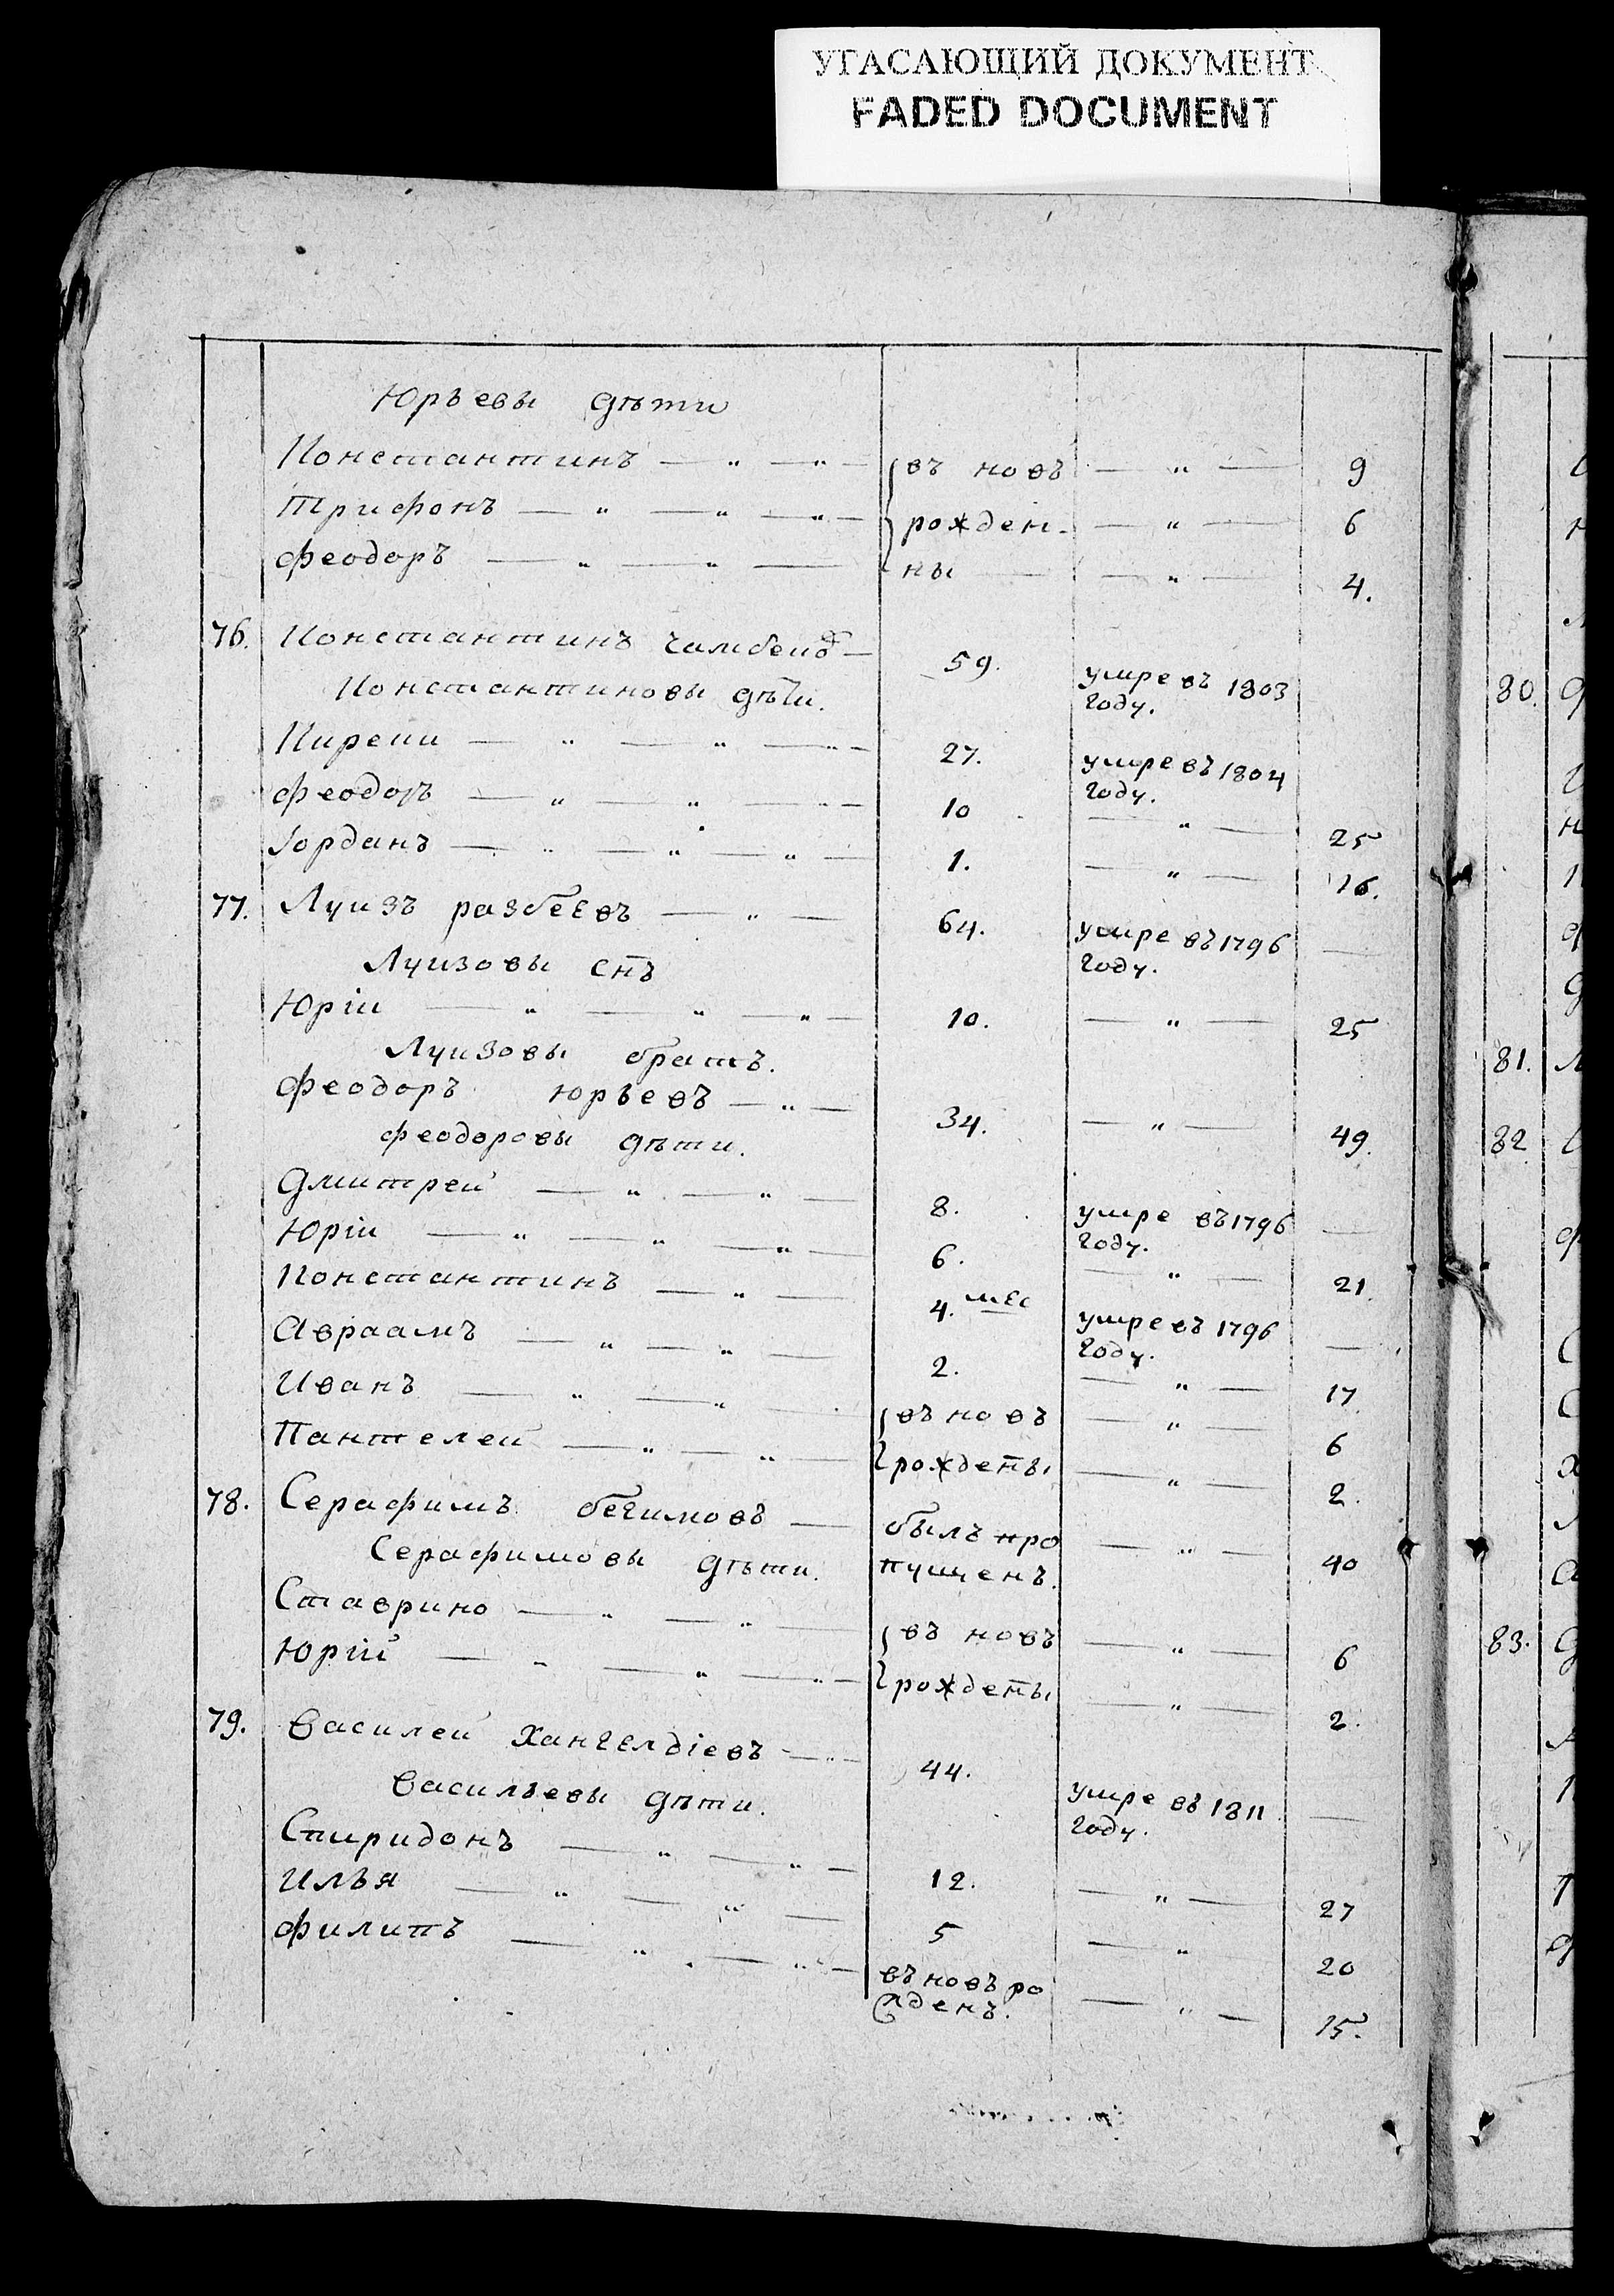 УГАСАЮЩИЙ ДОКУМЕНТ
FADED DOCUMENT
Юрьевы дѣти
Константинъ — „ — „ — въ новъ — „ — 9
Трифонъ — „ — „ — „ — рожден- — „ — 6
Феодоръ — „ — „ — ны — — „ — 4.
76. Константинъ — 59. умре въ 1803
Константиновы дѣти. году.
Киреки — „ — „ — „ — 27. умре въ 1804
году.
Феодоръ — „ — „ — „ — 10 — „ — 25
Іорданъ — „ — „ — „ — 1. — „ — 16.
77. Луизъ разбеевъ — „ — 64. умре въ 1796 —
Луизовы снъ году.
Юріи — „ — „ — „ — 10. — „ — 25
Луизовы братъ.
Феодоръ Юрьевъ — „ — 34. — „ — 49.
Феодоровы дѣти.
Дмитреи — „ — „ — 8. умре въ 1796 —
году.
Юріи — „ — „ — „ — 6. — „ — 21
Константинъ — „ — 4. мес умре въ 1796 —
году.
Авраамъ — „ — „ — 2. — „ — 17
Иванъ — „ — „ — въ новъ — „ — 6
Пантелеи — „ — „ — рождены — „ — 2.
78. Серафимъ бегимовъ — былъ про — „ — 40
Серафимовы дѣти. пущенъ.
Ставрино — „ — „ — въ новъ — „ — 6
Юрій — „ — „ — „ — рождены — „ — 2.
79. Василеи Хангелдіевъ — „ — 44. умре въ 1811 —
Васильевы дѣти. году.
Спиридонъ — „ — „ — 12. — „ — 27
Илья — „ — „ — 5 — „ — 20
Филипъ — „ — „ — въ новъ ро — „ — 15.
жденъ.
80.
81.
82.
83.